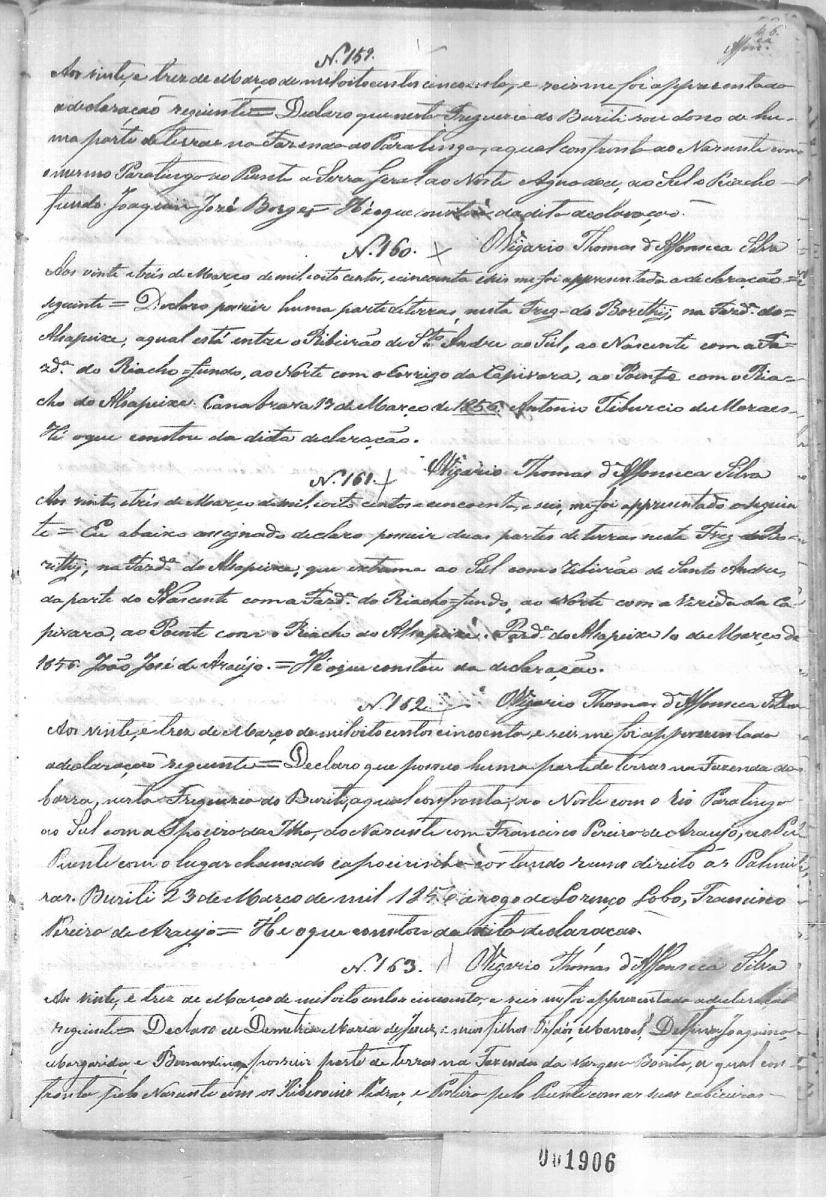 46
N. 159.
Aos vinte, e trez de Março de mil oito centos cincoenta, e seis me foi appresentada
a declaração seguinte = Declaro que nesta Freguezia do Buriti sou dono de hu-
ma parte de terras na Fazenda do Paratinga, a qual confronta ao Nascente com
o mesmo Paratinga ao Poente a Serra Geral ao Norte Agoadoce, ao Sul o Riacho
fundo. Joaquim José Borges = Hé o que constava da dita declaração.
N. 160. O Vigario Thomas d'Affonseca Silva
Aos vinte e trés de Março de mil oito centos, e cincoenta e seis me foi appresentada a declaração
seguinte = Declaro possuir huma parte de terras, nesta Freg. do Borethy, na Fazd.ª do
Assapeixe, a qual está entre o Ribeirão de Stº Andre ao Sul, ao Nascente com a Fa-
zd.ª do Riacho-fundo, ao Norte com o Corrigo da Capivara, ao Poente com o Ria-
cho do Assapeixe. Canabrava 13 de Março de 1856. Antonio Tiburcio de Moraes =
Hé o que constou da dista declaração.
N. 161. O Vigario Thomas d'Affonseca Silva
Aos vinte, e trés de Março de mil oito centos e cincoenta, e seis, me foi appresentado o seguin
te = Eu abaixo assignado declaro possuir duas partes de terras nesta Freg. do Bo-
rithy, na Fazd.ª do Assapeixe, que extrema ao Sul com o Ribeirão de Santo Andre,
da parte do Nascente com a Fazd.ª do Riacho-fundo, ao Norte com a Verida da Ca-
pivara, ao Poente com o Riacho do Assapeixe. Fazd.ª do Assapeixe 10 de Março de
1856. João José de Araújo. = Hé o que constou da declaração.
N. 162 O Vigario Thomas d'Affonseca Silva
Aos vinte, e trez de Março de mil oito centos cincoenta, e seis me foi appresentada
a declaração seguinte = Declaro que possuo huma parte de terras na Fazenda da
barra, nesta Freguezia do Buriti, a qual confronta, ao Norte com o rio Paratinga
ao Sul com a da Ilha, do Nascente com Francisco Pereira de Araujo, ao
Puente com o lugar chamado capoeirinha cortando rumo direito ás Palmei-
ras. Buriti 23 de Março de mil 1856 a rogo de Lorenço Lobo, Francisco
Pereira de Araujo = He o que constou da dita declaração.
N. 163. O Vigario Thomas d'Affonseca Silva
Aos vinte, e trez de Março de mil oito centos cincoenta, e seis me foi appresentada a declaração
seguinte = Declaro eu Demetria Maria de Jesus, e meus filhos Orfãos, Manoel, Delfina, Joaquina,
Margarida, e Bernardina, possuir parte de terras na Fazenda da Vargem Bonita, a qual con
fronta pelo Nascente com os pelo Puente com as suas cabiceiras -
001906